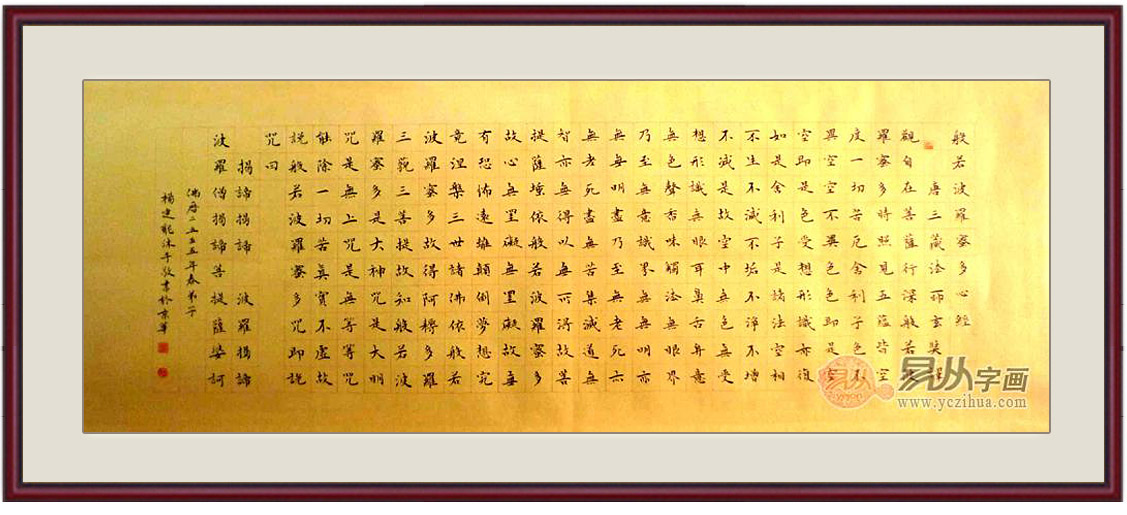 般若波羅蜜多心經
唐三藏法師玄奘譯
觀自在菩薩行深般若波
羅蜜多時照見五蘊皆空
度一切苦厄舍利子色不
異空空不異色色即是空
空即是色受想形識亦復
如是舍利子是諸法空相
不生不滅不垢不淨不增
不滅是故空中無色無受
想形識無眼耳鼻舌身意
無色聲香味觸法無眼界
乃至無意識界無無明亦
無無明盡乃至無老死亦
無老死盡無苦集滅道無
智亦無得以無所得故菩
提薩埵依般若波羅蜜多
故心無罣礙無罣礙故無
有恐怖遠離顛倒夢想究
竟涅槃三世諸佛依般若
波羅蜜多故得阿耨多羅
三藐三菩提故知般若波
羅蜜多是大神咒是大明
咒是無上咒是無等等咒
能除一切苦真實不虛故
說般若波羅蜜多咒即說
咒曰
揭諦揭諦 波羅揭諦
波羅僧揭諦菩提薩婆訶
佛曆二五五五年春弟子
楊建沐手敬書於京華
易从字画
www.yczihua.com